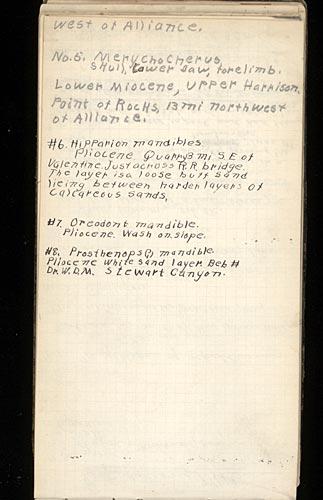 west of Alliance.
No. 5. Merychocherus,
skull, lower jaw, forelimb.
Lower Miocene, Upper Harrison.
Point of Rocks, 13mi northwest
of Alliance.
#6. Hipparion mandibles
Pliocene Quarry 3 mi S.E. of
Valentine. Just across R.R. bridge
The layer is a loose buff sand
lieing between harder layers of
Calcareous sands.
#7. Oreodont mandible.
Pliocene. Wash on slope.
#8. Prosthenops(?) mandible
Pliocene White sand layer. Beb #
Dr. W.D.M. Stewart Canyon.